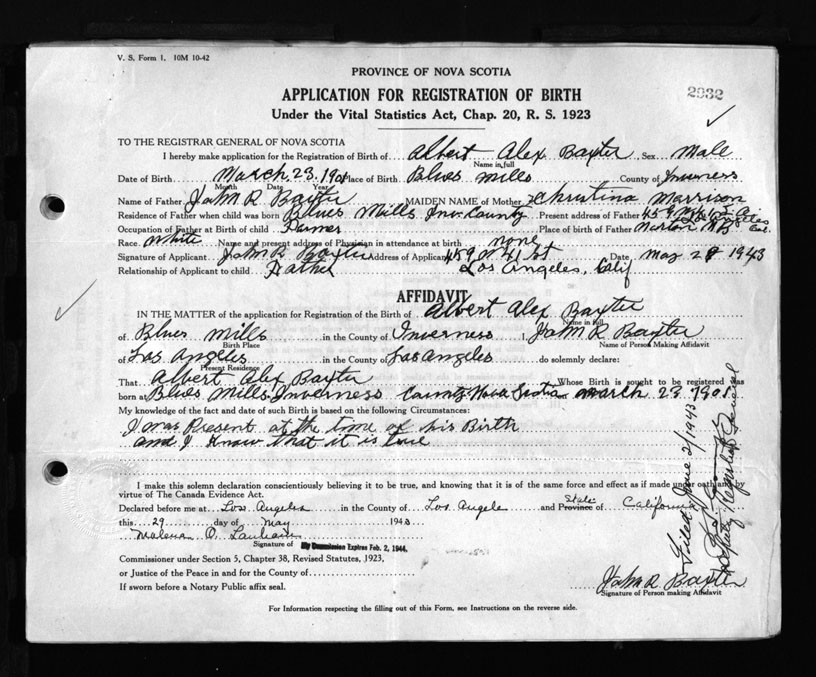 V. S. Form 1. 10M 10-42
PROVINCE OF NOVA SCOTIA
2932
APPLICATION FOR REGISTRATION OF BIRTH
Under the Vital Statistics Act, Chap. 20, R. S. 1923
TO THE REGISTRAR GENERAL OF NOVA SCOTIA
I hereby make application for the Registration of Birth of Albert Alex Baxter Sex Male
Name in full
Date of Birth March 23 1901 Place of Birth Blues Mills County of Inverness
Month Day Year
Name of Father John R Baxter MAIDEN NAME of Mother Christina Morrison
Residence of Father when child was born Blues Mills Inv. County Present address of Father 459 Los Angeles Cal.
Occupation of Father at Birth of child Farmer Place of birth of Father
Race. White Name and present address of Physician in attendance at birth none
Signature of Applicant John R Baxter Address of Applicant 459 W 41 St Date May 29 1943
Relationship of Applicant to child Father Los Angeles, Calif
AFFIDAVIT
IN THE MATTER of the application for Registration of the Birth of Albert Alex Baxter
Name in full
of Blues Mills in the County of Inverness John R Baxter
Birth Place Name of Person Making Affidavit
of Los Angeles in the County of Los Angeles do solemnly declare:
Present Residence
That Albert Alex Baxter Whose Birth is sought to be registered was
born at Blues Mills Inverness County Nova Scotia March 23 1901
My knowledge of the fact and date of such Birth is based on the following Circumstances:
I was Present at the time of his Birth
and I know that it is true
I make this solemn declaration conscientiously believing it to be true, and knowing that it is of the same force and effect as if made under oath and by
virtue of The Canada Evidence Act.
Declared before me at Los Angeles in the County of Los Angeles and State Province of California
this 29 day of May 1943
Signature of My Commission Expires Feb. 2, 1944.
Commissioner under Section 5, Chapter 38, Revised Statutes, 1923,
or Justice of the Peace in and for the County of
If sworn before a Notary Public affix seal.
John R Baxter
Signature of Person making Affidavit
For Information respecting the filling out of this Form, see Instructions on the reverse side.
Filed June 2/1943
Deputy Registrar General